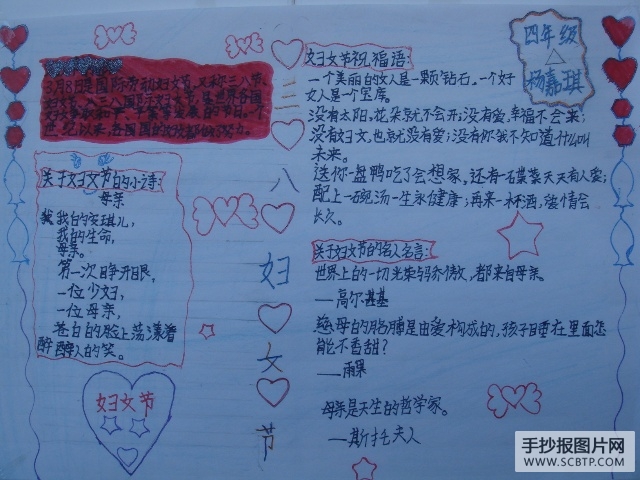 3月8日是国际劳动妇女节,又称三八节、
世纪以来,各国
关于妇女节的小诗:
母亲
我的安琪儿,
我的生命,
母亲。
第一次睁开眼,
一位少妇,
一位母亲,
苍白的脸上荡漾着
醉人的笑。
妇女节
三
八
妇
女
节
妇女节祝福语:
一个美丽的女人是一颗钻石。一个好
女人是一个宝库。
没有太阳,花朵就不会开;没有爱,幸福不会来;
没有妇女,也就没有爱;没有你我不知道什么叫
未来。
送你一盘鸭吃了会想家,还有一碟菜天天有人爱;
配上一碗汤一生永健康;再来一杯酒,爱情会
长久。
关于妇女节的名人名言:
世界上的一切光荣与骄傲,都来自母亲。
——高尔基
慈母的胳膊是由爱构成的,孩子睡在里面怎
能不香甜?
——雨果
母亲是天生的哲学家。
——斯托夫人
四年级
杨嘉琪
手抄报图片网
WWW.SCBTP.COM